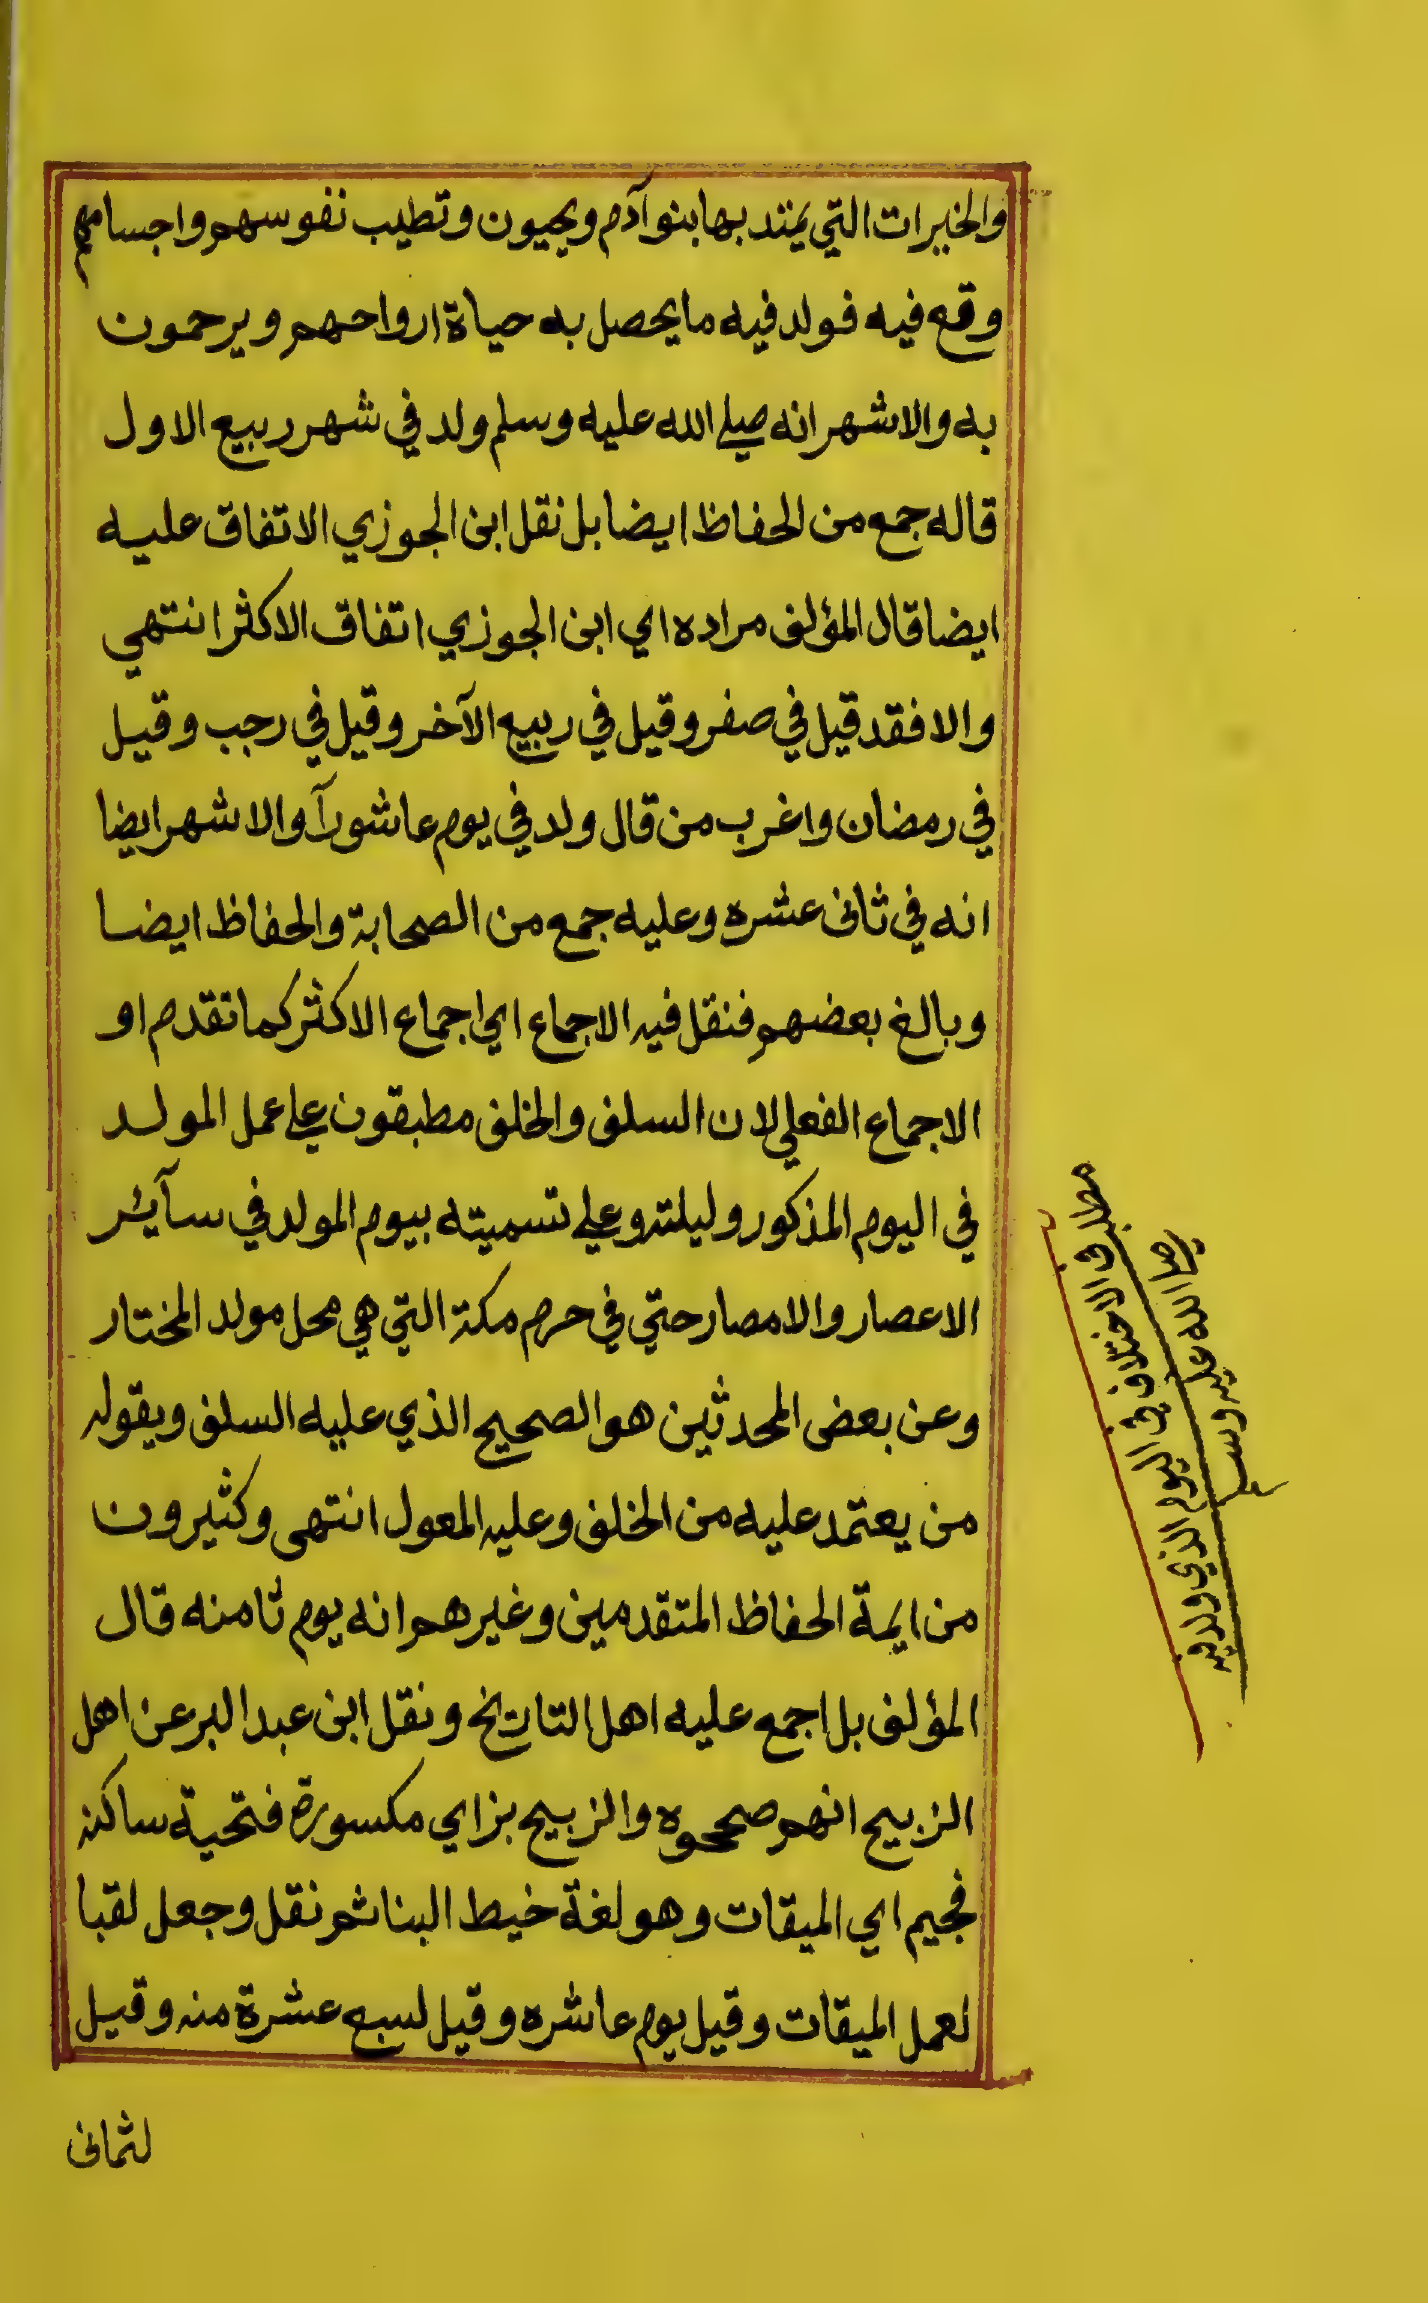 والخيرات التي يمتد بها بنو آدم ويحيون وتطيب نفوسهم واجسامهم
وقع فيه فولد فيه ما يحصل به حياة ارواحهم ويرحمون
به والاشهر انه صلي الله عليه وسلم ولد في شهر ربيع الاول
قاله جمع من الحفاظ ايضا بل نقل ابن الجوزي الاتفاق عليه
ايضا قال المؤلف مراده اي ابن الجوزي اتفاق الاكثر انتهي
والا فقد قيل في صفر وقيل في ربيع الآخر وقيل في رجب وقيل
في رمضان واغرب من قال ولد في يوم عاشورآ والاشهر ايضا
انه في ثانى عشره وعليه جمع من الصحابة والحفاظ ايضا
وبالغ بعضهم فنقل فيه الاجماع اي اجماع الاكثر كما تقدم او
الاجماع الفعلي لان السلف والخلف مطبقون علي عمل المولد
في اليوم المذكور وليلته وعلي تسميته بيوم المولد في سآئر
الاعصار والامصار حتي في حرم مكة التي هي محل مولد المختار
وعن بعض المحدثين هو الصحيح الذي عليه السلف وبقوله
من يعتمد عليه من الخلف وعليه المعول انتهى وكثيرون
من ايمة الحفاظ المتقدمين وغيرهم انه يوم ثامنه قال
المؤلف بل اجمع عليه اهل التاريخ ونقل ابن عبد البر عن اهل
الزبيج انهم صححوه والزبيج بزاي مكسورة فتحية ساكنة
فجيم اي الميقات وهو لغة خيط البنا ثم نقل وجعل لقبا
لعمل الميقات وقيل يوم عاشره وقيل لسبع عشرة منه وقيل
لثمانى
مطلب في الاختلاف في اليوم الذي ولد فيه
صلي الله عليه وسلم